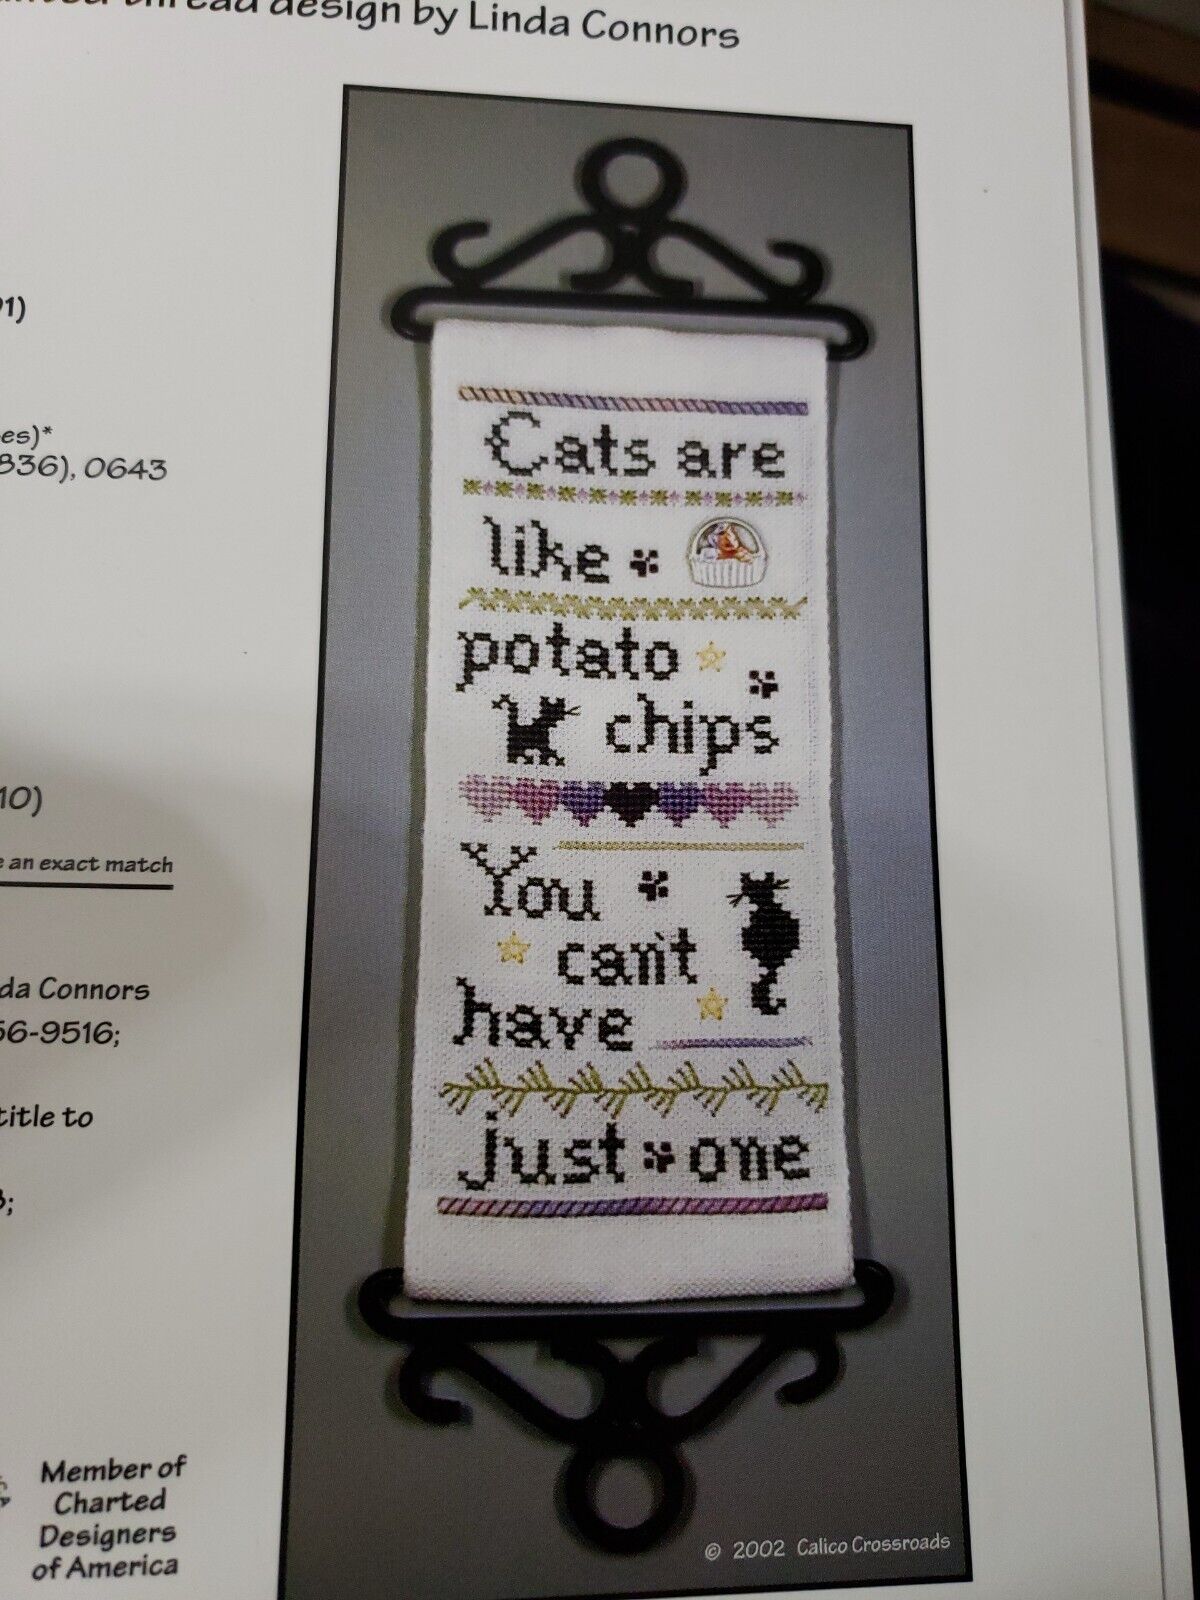 thread design by Linda Connors
91)
es)*
836), 0643
10)
e an exact match
da Connors
56-9516;
title to
3;
Member of
Charted
Designers
of America
Cats are
like
potato
chips
You
can't
have
just one
© 2002 Calico Crossroads